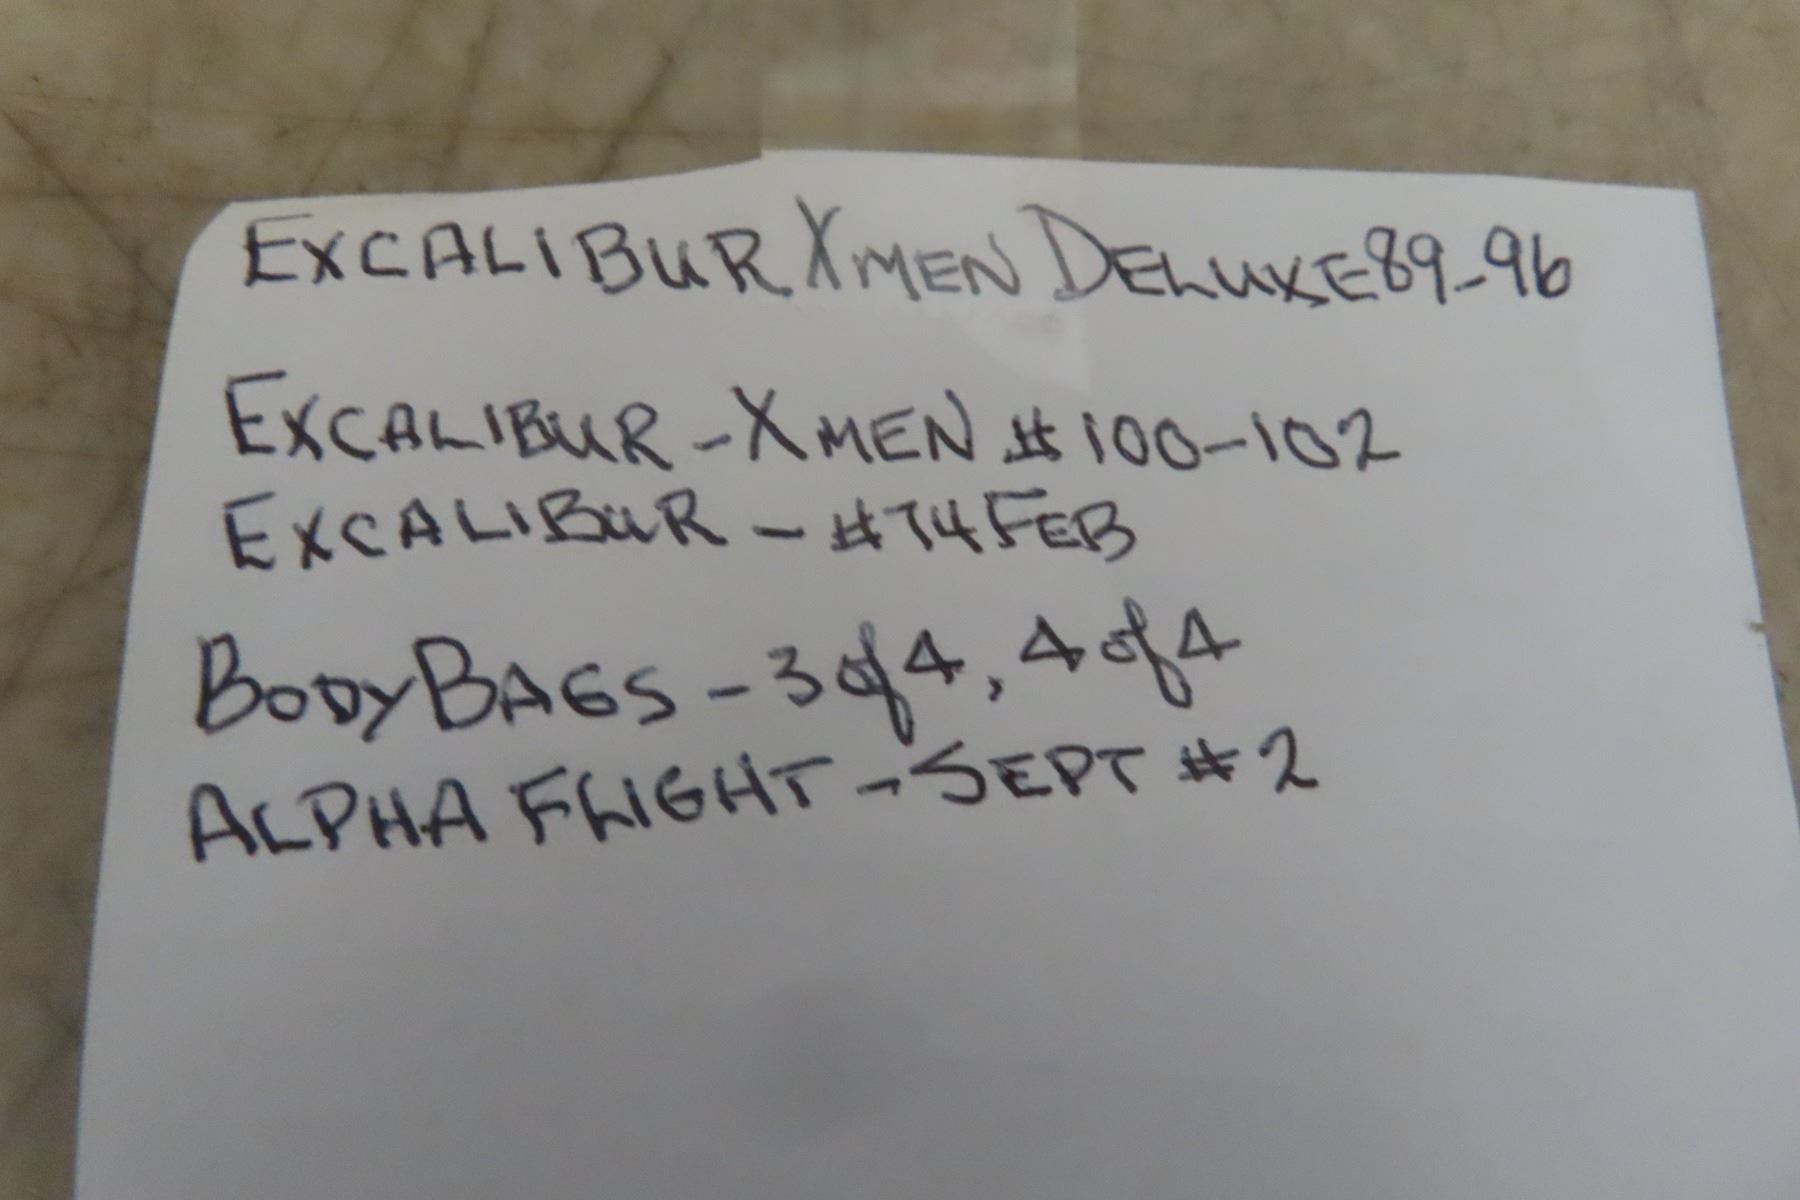 EXCALIBUR XMEN DELUXE 89-96
EXCALIBUR - XMEN #100-102
EXCALIBUR - #74 FEB
BODY BAGS - 3 of 4, 4 of 4
ALPHA FLIGHT - SEPT #2